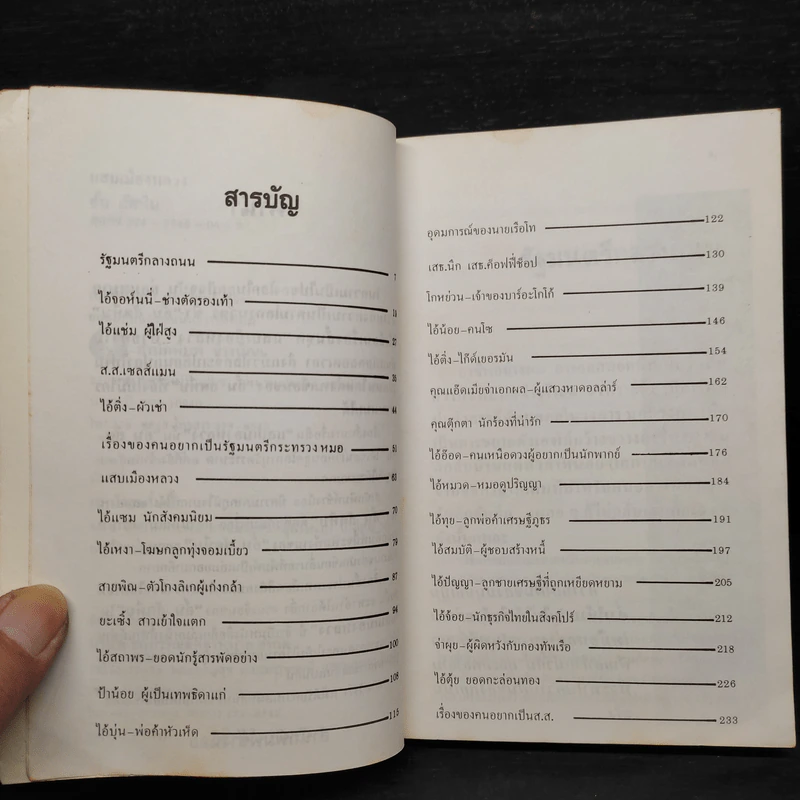 สารบัญ
รัฐมนตรีกลางถนน 7
ไอ้จอห์นนี่-ช่างตัดรองเท้า
ไอ้แช่ม ผู้ใฝ่สูง 27
ส.ส.เซลส์แมน
ไอ้ติ่ง-ผัวเช่า 44
เรื่องของคนอยากเป็นรัฐมนตรีกระทรวงหมอ 51
แสบเมืองหลวง 63
ไอ้แซม นักสังคมนิยม 70
ไอ้เหงา-โฆษกลูกทุ่งจอมเบี้ยว 79
สายพิณ-ตัวโกงลิเกผู้เก่งกล้า 87
ยะเซิ้ง สาวเย้าใจแตก 94
ไอ้สถาพร-ยอดนักรู้สารพัดอย่าง 100
ป้าน้อย ผู้เป็นเทพธิดาแก่ 108
ไอ้บุ่น-พ่อค้าหัวเห็ด 115
อุดมการณ์ของนายเรือโท 122
เสธ.นึก เสธ.ค๊อฟฟี่ช็อป 130
โกหย่วน-เจ้าของบาร์อะโกโก้ 139
ไอ้น้อย-คนโซ 146
ไอ้ติ่ง-ไก๊ด์เยอรมัน 154
คุณแอ๊ดเมียจ่าเอกผล-ผู้แสวงหาดอลล่าร์ 162
คุณตุ๊กตา นักร้องที่น่ารัก 170
ไอ้อ๊อด-คนเหนือดวงผู้อยากเป็นนักพากย์ 176
ไอ้หมวด-หมอดูปริญญา 184
ไอ้ทุย-ลูกพ่อค้าเศรษฐีภูธร 191
ไอ้สมบัติ-ผู้ชอบสร้างหนี้ 197
ไอ้ปัญญา-ลูกชายเศรษฐีที่ถูกเหยียดหยาม 205
ไอ้จ้อย-นักธุรกิจไทยในสิงคโปร์ 212
จ่าผุย-ผู้ผิดหวังกับกองทัพเรือ 218
ไอ้ตุ้ย ยอดกะล่อนทอง 226
เรื่องของคนอยากเป็นส.ส. 233